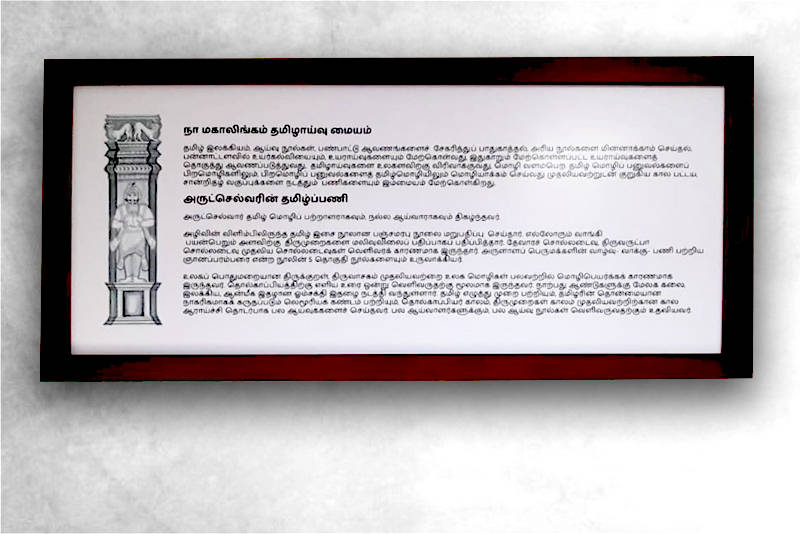 நா மகாலிங்கம் தமிழாய்வு மையம்
தமிழ் இலக்கியம், ஆய்வு நூல்கள், பண்பாட்டு ஆவணங்களைச் சேகரித்துப் பாதுகாத்தல், அரிய நூல்களை மின்னாக்கம் செய்தல்,
பன்னாட்டளவில் உயர்கல்வியையும், உயராய்வுகளையும் மேற்கொள்வது, இதுகாறும் மேற்கொள்ளப்பட்ட உயராய்வுகளைத்
தொகுத்து ஆவணப்படுத்துவது, தமிழாய்வுகளை உலகளவிற்கு விரிவாக்குவது, மொழி வளம்பெற தமிழ் மொழிப் பனுவல்களைப்
பிறமொழிகளிலும், பிறமொழிப் பனுவல்களைத் தமிழ்மொழியிலும் மொழியாக்கம் செய்வது முதலியவற்றுடன் குறுகிய கால பட்டய,
சான்றிதழ் வகுப்புக்களை நடத்தும் பணிகளையும் இம்மையம் மேற்கொள்கிறது.
அருட்செல்வரின் தமிழ்ப்பணி
அருட்செல்வர் தமிழ் மொழிப் பற்றாளராகவும், நல்ல ஆய்வாராகவும் திகழ்ந்தவர்.
அழிவின் விளிம்பிலிருந்த தமிழ் இசை நூலான பஞ்சமரபு நூலை மறுபதிப்பு செய்தார். எல்லோரும் வாங்கி
பயன்பெறும் அளவிற்கு திருமுறைகளை மலிவுவிலைப் பதிப்பாகப் பதிப்பித்தார். தேவாரச் சொல்லடைவு, திருவருட்பா
சொல்லடைவு முதலிய சொல்லடைவுகள் வெளிவரக் காரணமாக இருந்தார். அருளாளப் பெருமக்களின் வாழ்வு- வாக்கு- பணி பற்றிய
ஞானப்பரம்பரை என்ற நூலின் 5 தொகுதி நூல்களையும் உருவாக்கியவர்.
உலகப் பொதுமறையான திருக்குறள், திருவாசகம் முதலியவற்றை உலக மொழிகள் பலவற்றில் மொழிபெயர்க்கக் காரணமாக
இருந்தவர். தொல்காப்பியத்திற்கு எளிய உரை ஒன்று வெளிவருதற்கு மூலமாக இருந்தவர். நாற்பது ஆண்டுகளுக்கு மேலாக கலை,
இலக்கிய, ஆன்மீக இதழான ஓம்சக்தி இதழை நடத்தி வந்துள்ளார். தமிழ் எழுத்து முறை பற்றியும், தமிழரின் தொன்மையான
நாகரிகமாகக் கருதப்படும் லெமூரியக் கண்டம் பற்றியும், தொல்காப்பியர் காலம், திருமுறைகள் காலம் முதலியவற்றிற்கான கால
ஆராய்ச்சி தொடர்பாக பல ஆய்வுக்களைச் செய்தவர். பல ஆய்வாளர்களுக்கும், பல ஆய்வு நூல்கள் வெளிவருவதற்கும் உதவியவர்.